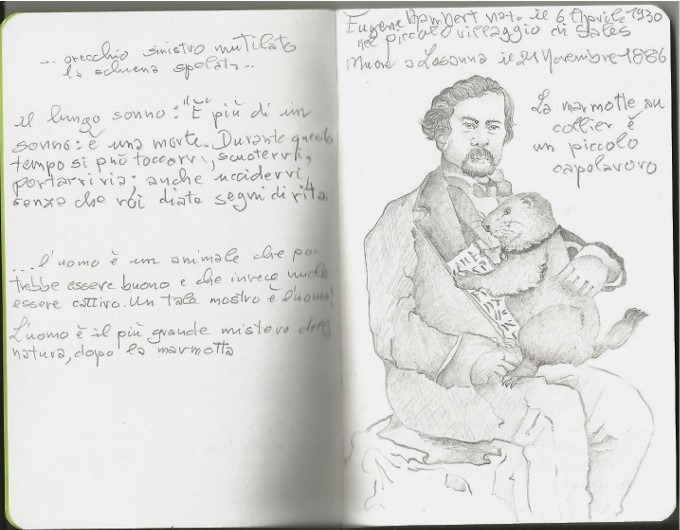 ... orecchio sinistro mutilato
la schiena spelata ..
il lungo sonno: "È più di un
sonno: è una morte. Durante questo
tempo si può toccarvi, scuotervi,
portarvi via; anche uccidervi,
senza che voi diate segni di vita.
...l'uomo è un animale che po-
trebbe essere buono e che invece vuole
essere cattivo. Un tale mostro è l'uomo!
L'uomo è il più grande mistero della
natura, dopo la marmotta
Eugene Rambert nato il 6 Aprile 1930
nel piccolo villaggio di Sales
Muore a Losanna il 21 Novembre 1886
La marmotte au
collier è
un piccolo
capolavoro